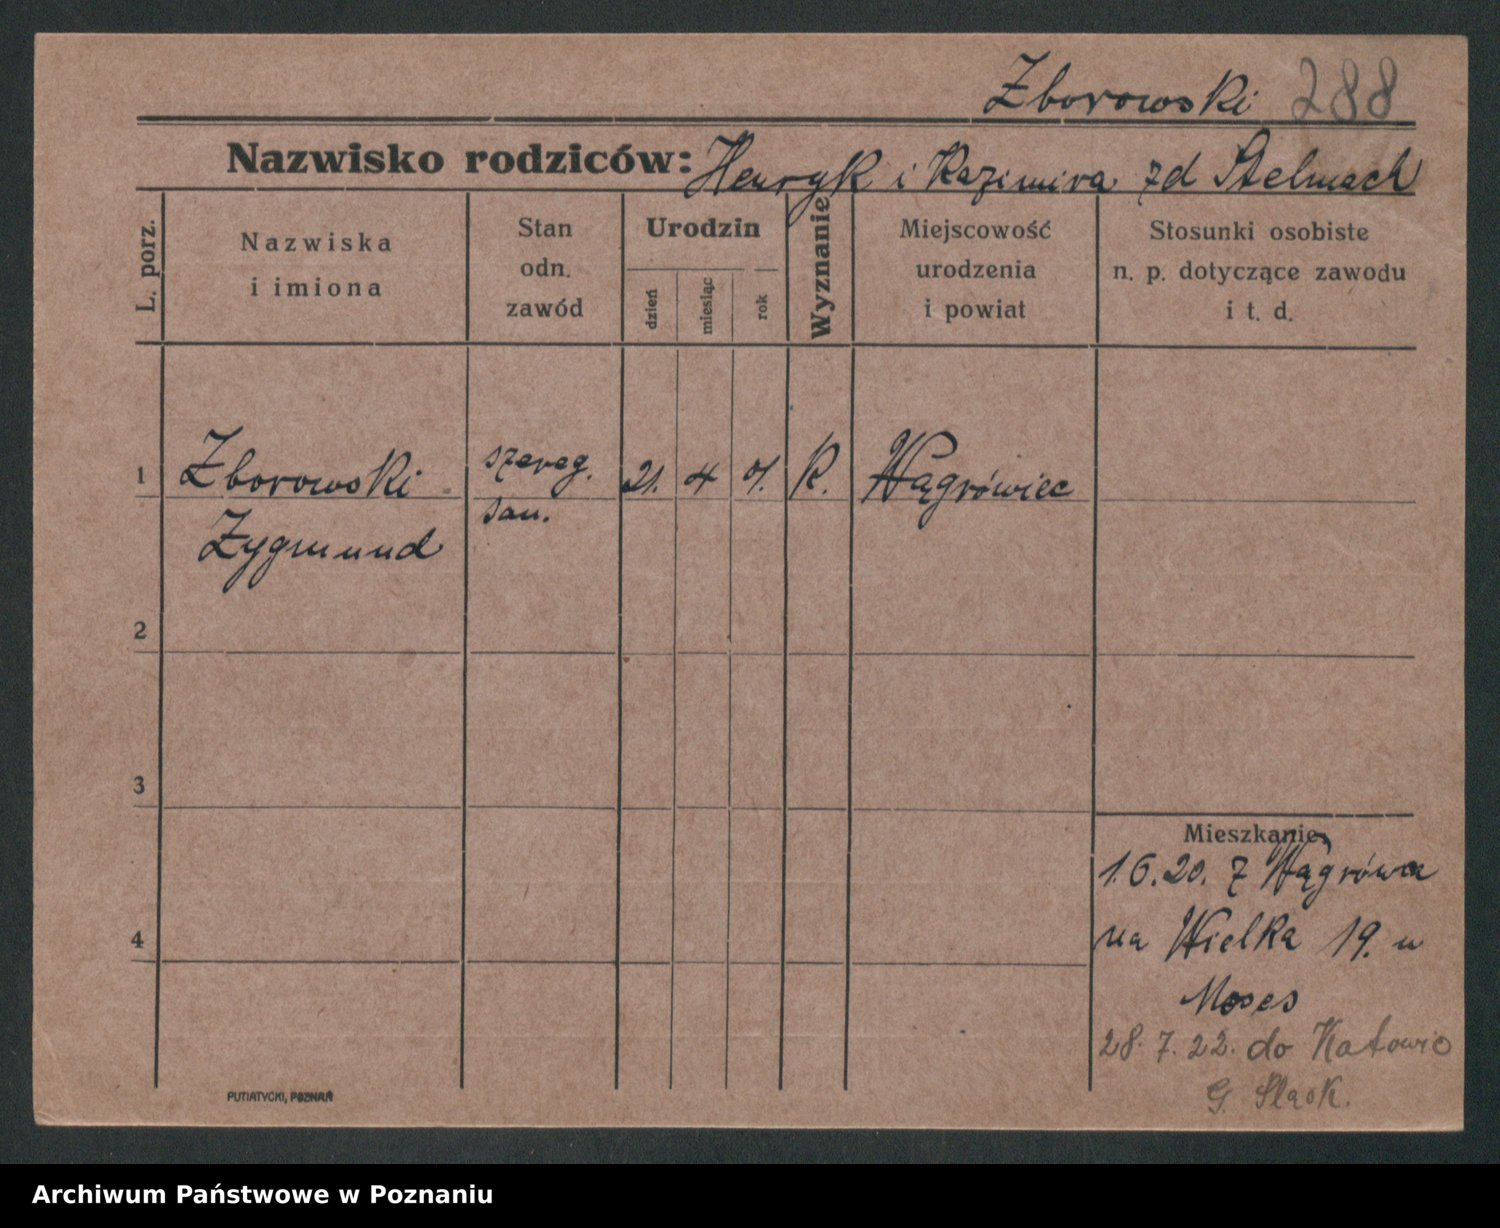 Zborowski 288
Nazwisko rodziców: Henryk i Kazimira zd Stelmach
L. porz.
Nazwiska
i imiona
Stan
odn.
zawód
Urodzin
dzień
miesiąc
rok
Wyznanie
Miejscowość
urodzenia
i powiat
Stosunki osobiste
n. p. dotyczące zawodu
i t. d.
1 Zborowski szereg. 21. 4 R. Wągrówiec
Zygmund san.
2
3
Mieszkanie
1.6.20. z Wągrówca
4 na Wielka 19. u
Moses
28. 7. 22. do Katowic
G. Sląsk.
PUTIATYCKI, POZNAŃ
Archiwum Państwowe w Poznaniu